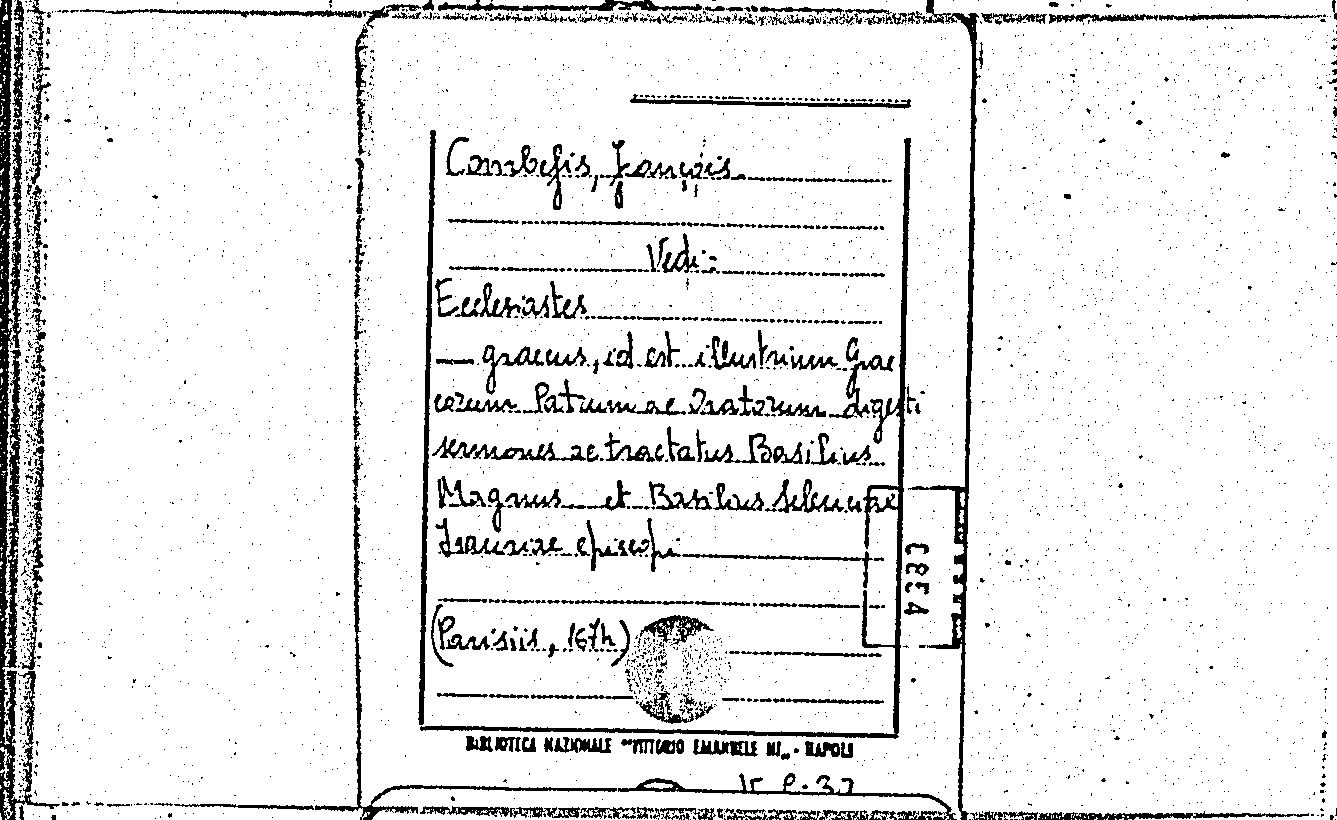 Combefis, François
Vedi:
Ecclesiastes
— graecus, id est illustrium Grae
corum Patrum ac Oratorum digesti
sermones ac tractatus Basilius
Magnus et Basilius Seleuciae
Isauriae episcopi
(Parisiis, 1674)
BIBLIOTECA NAZIONALE "VITTORIO EMANUELE III" - NAPOLI